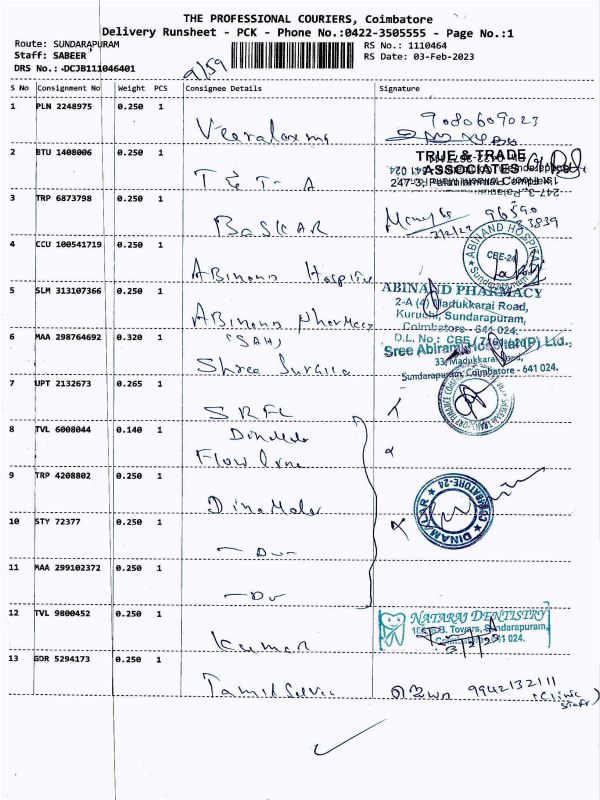 THE PROFESSIONAL COURIERS, Coimbatore
Delivery Runsheet - PCK - Phone No.:0422-3505555 - Page No.:1
Route: SUNDARAPURAM
RS No.: 1110464
Staff: SABEER
RS Date: 03-Feb-2023
DRS No.: DCJB111046401
9/59
S No Consignment No Weight PCS Consignee Details Signature
1 PLN 2248975 0.250 1 Veeralaxmi 9080609023
2 BTU 1408006 0.250 1 T & T - A
TRUE & TRADE
ASSOCIATES
3 TRP 6873798 0.250 1 BaSKAR 96590
4 CCU 100541719 0.250 1 Abinand Hospital
ABINAND HOSPITAL
CBE-24
Sundarapuram
5 SLM 313107366 0.250 1 Abinand Pharmacy
ABINAND PHARMACY
2-A (4) Madukkarai Road,
Kuruchi, Sundarapuram,
Coimbatore - 641 024.
D.L. No.: CBE
6 MAA 298764692 0.320 1 (SAH)
Shree Surgica
Sree Abirami Hospital (P) Ltd.,
33, Madukkarai Road,
Sundarapuram, Coimbatore - 641 024.
7 UPT 2132673 0.265 1 SRFL
8 TVL 6008044 0.140 1 DinaMalar
Flow line
9 TRP 4208802 0.250 1 DinaMalar
DINAMALAR
COIMBATORE-24
10 STY 72377 0.250 1 - Do -
11 MAA 299102372 0.250 1 - Do
12 TVL 9800452 0.250 1 Kumar
NATARAJ DENTISTRY
Towers, Sundarapuram,
Coimbatore - 641 024.
3/2/23
13 GDR 5294173 0.250 1 Tamil Selvi 9942132111
(Clinic
Staff)